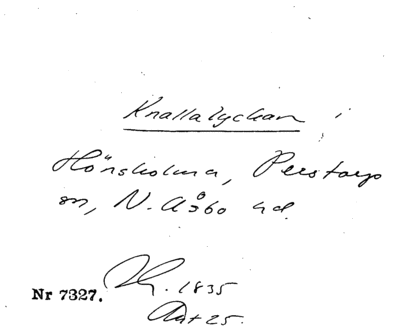 Knallalyckan
Hönsholma, Perstorps
sn, N. Åsbo hd.
1835
Nr 7327.
Akt 25.